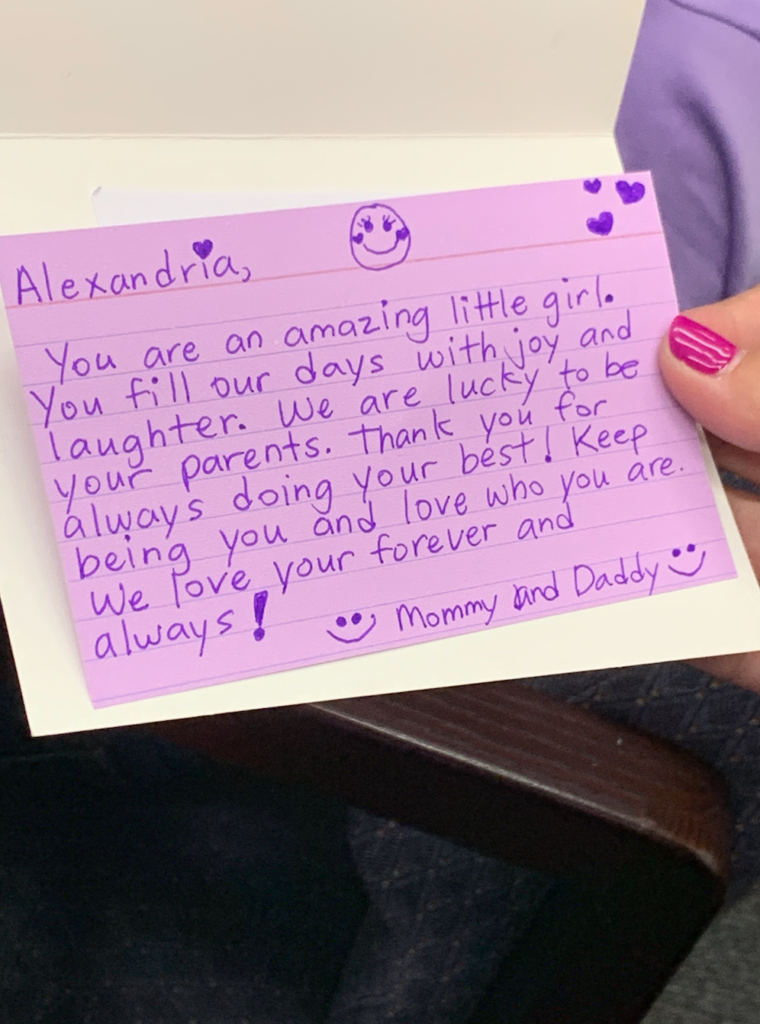 Alexandria,
You are an amazing little girl.
You fill our days with joy and
laughter. We are lucky to be
your parents. Thank you for
always doing your best! Keep
being you and love who you are.
We love your forever and
always!
Mommy and Daddy